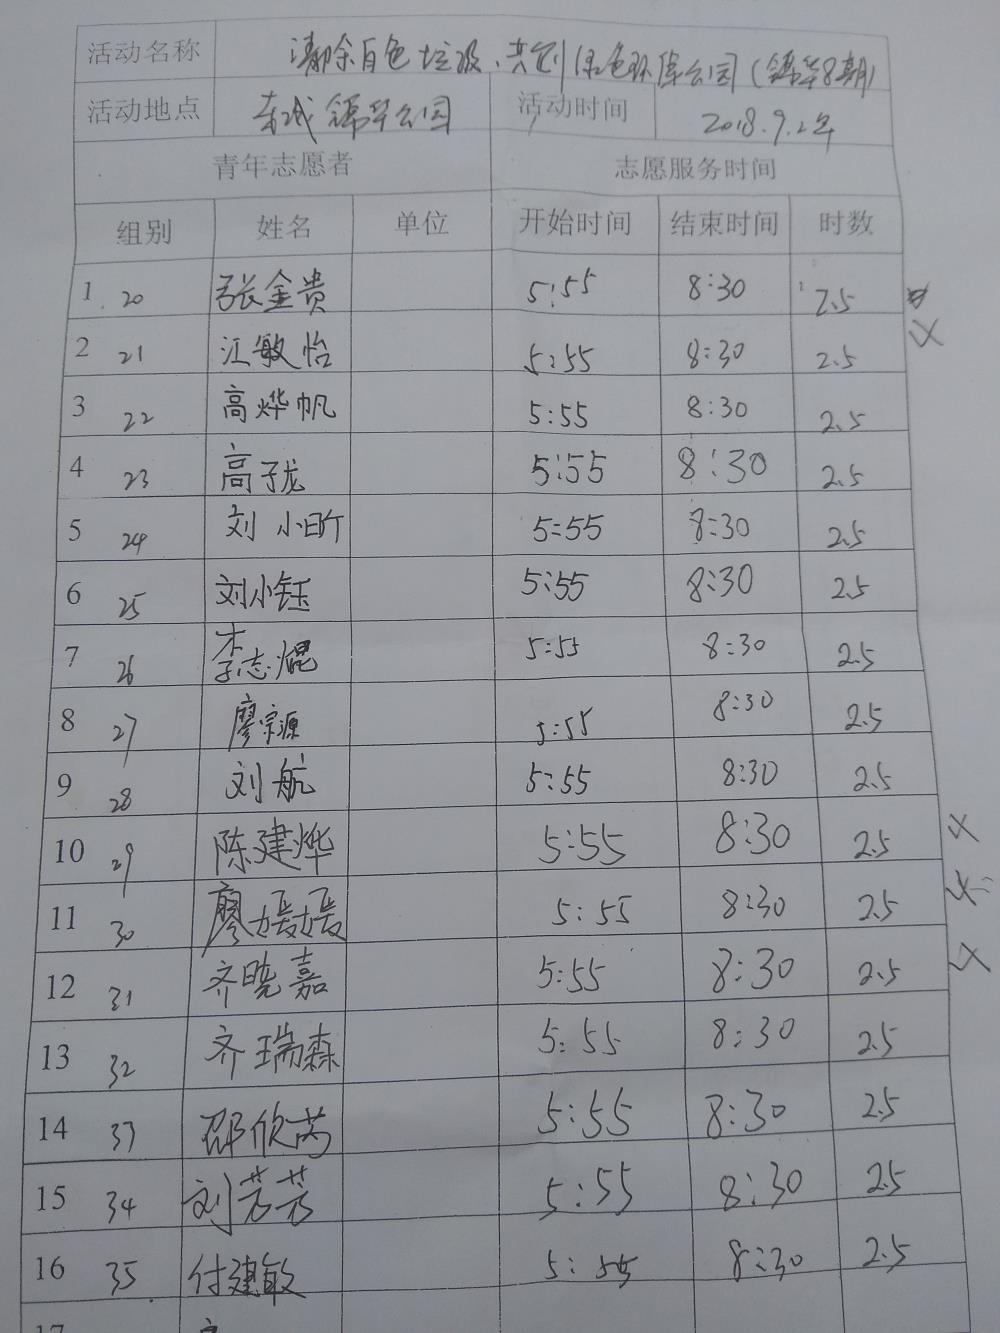 活动名称 清除白色垃圾、共创绿色环保公园（锦华8期）
活动地点 东城锦华公园 活动时间 2018.9.2午
青年志愿者 志愿服务时间
组别 姓名 单位 开始时间 结束时间 时数
1 20 张金贵 5:55 8:30 2.5
2 21 江敏怡 5:55 8:30 2.5
3 22 高烨帆 5:55 8:30 2.5
4 23 高子龙 5:55 8:30 2.5
5 24 刘小昕 5:55 8:30 2.5
6 25 刘小钰 5:55 8:30 2.5
7 26 李志焜 5:55 8:30 2.5
8 27 廖宗源 5:55 8:30 2.5
9 28 刘航 5:55 8:30 2.5
10 29 陈建烨 5:55 8:30 2.5
11 30 廖媛媛 5:55 8:30 2.5
12 31 齐晓嘉 5:55 8:30 2.5
13 32 齐瑞森 5:55 8:30 2.5
14 33 邵欣芮 5:55 8:30 2.5
15 34 刘芳芳 5:55 8:30 2.5
16 35 付建敏 5:55 8:30 2.5
17